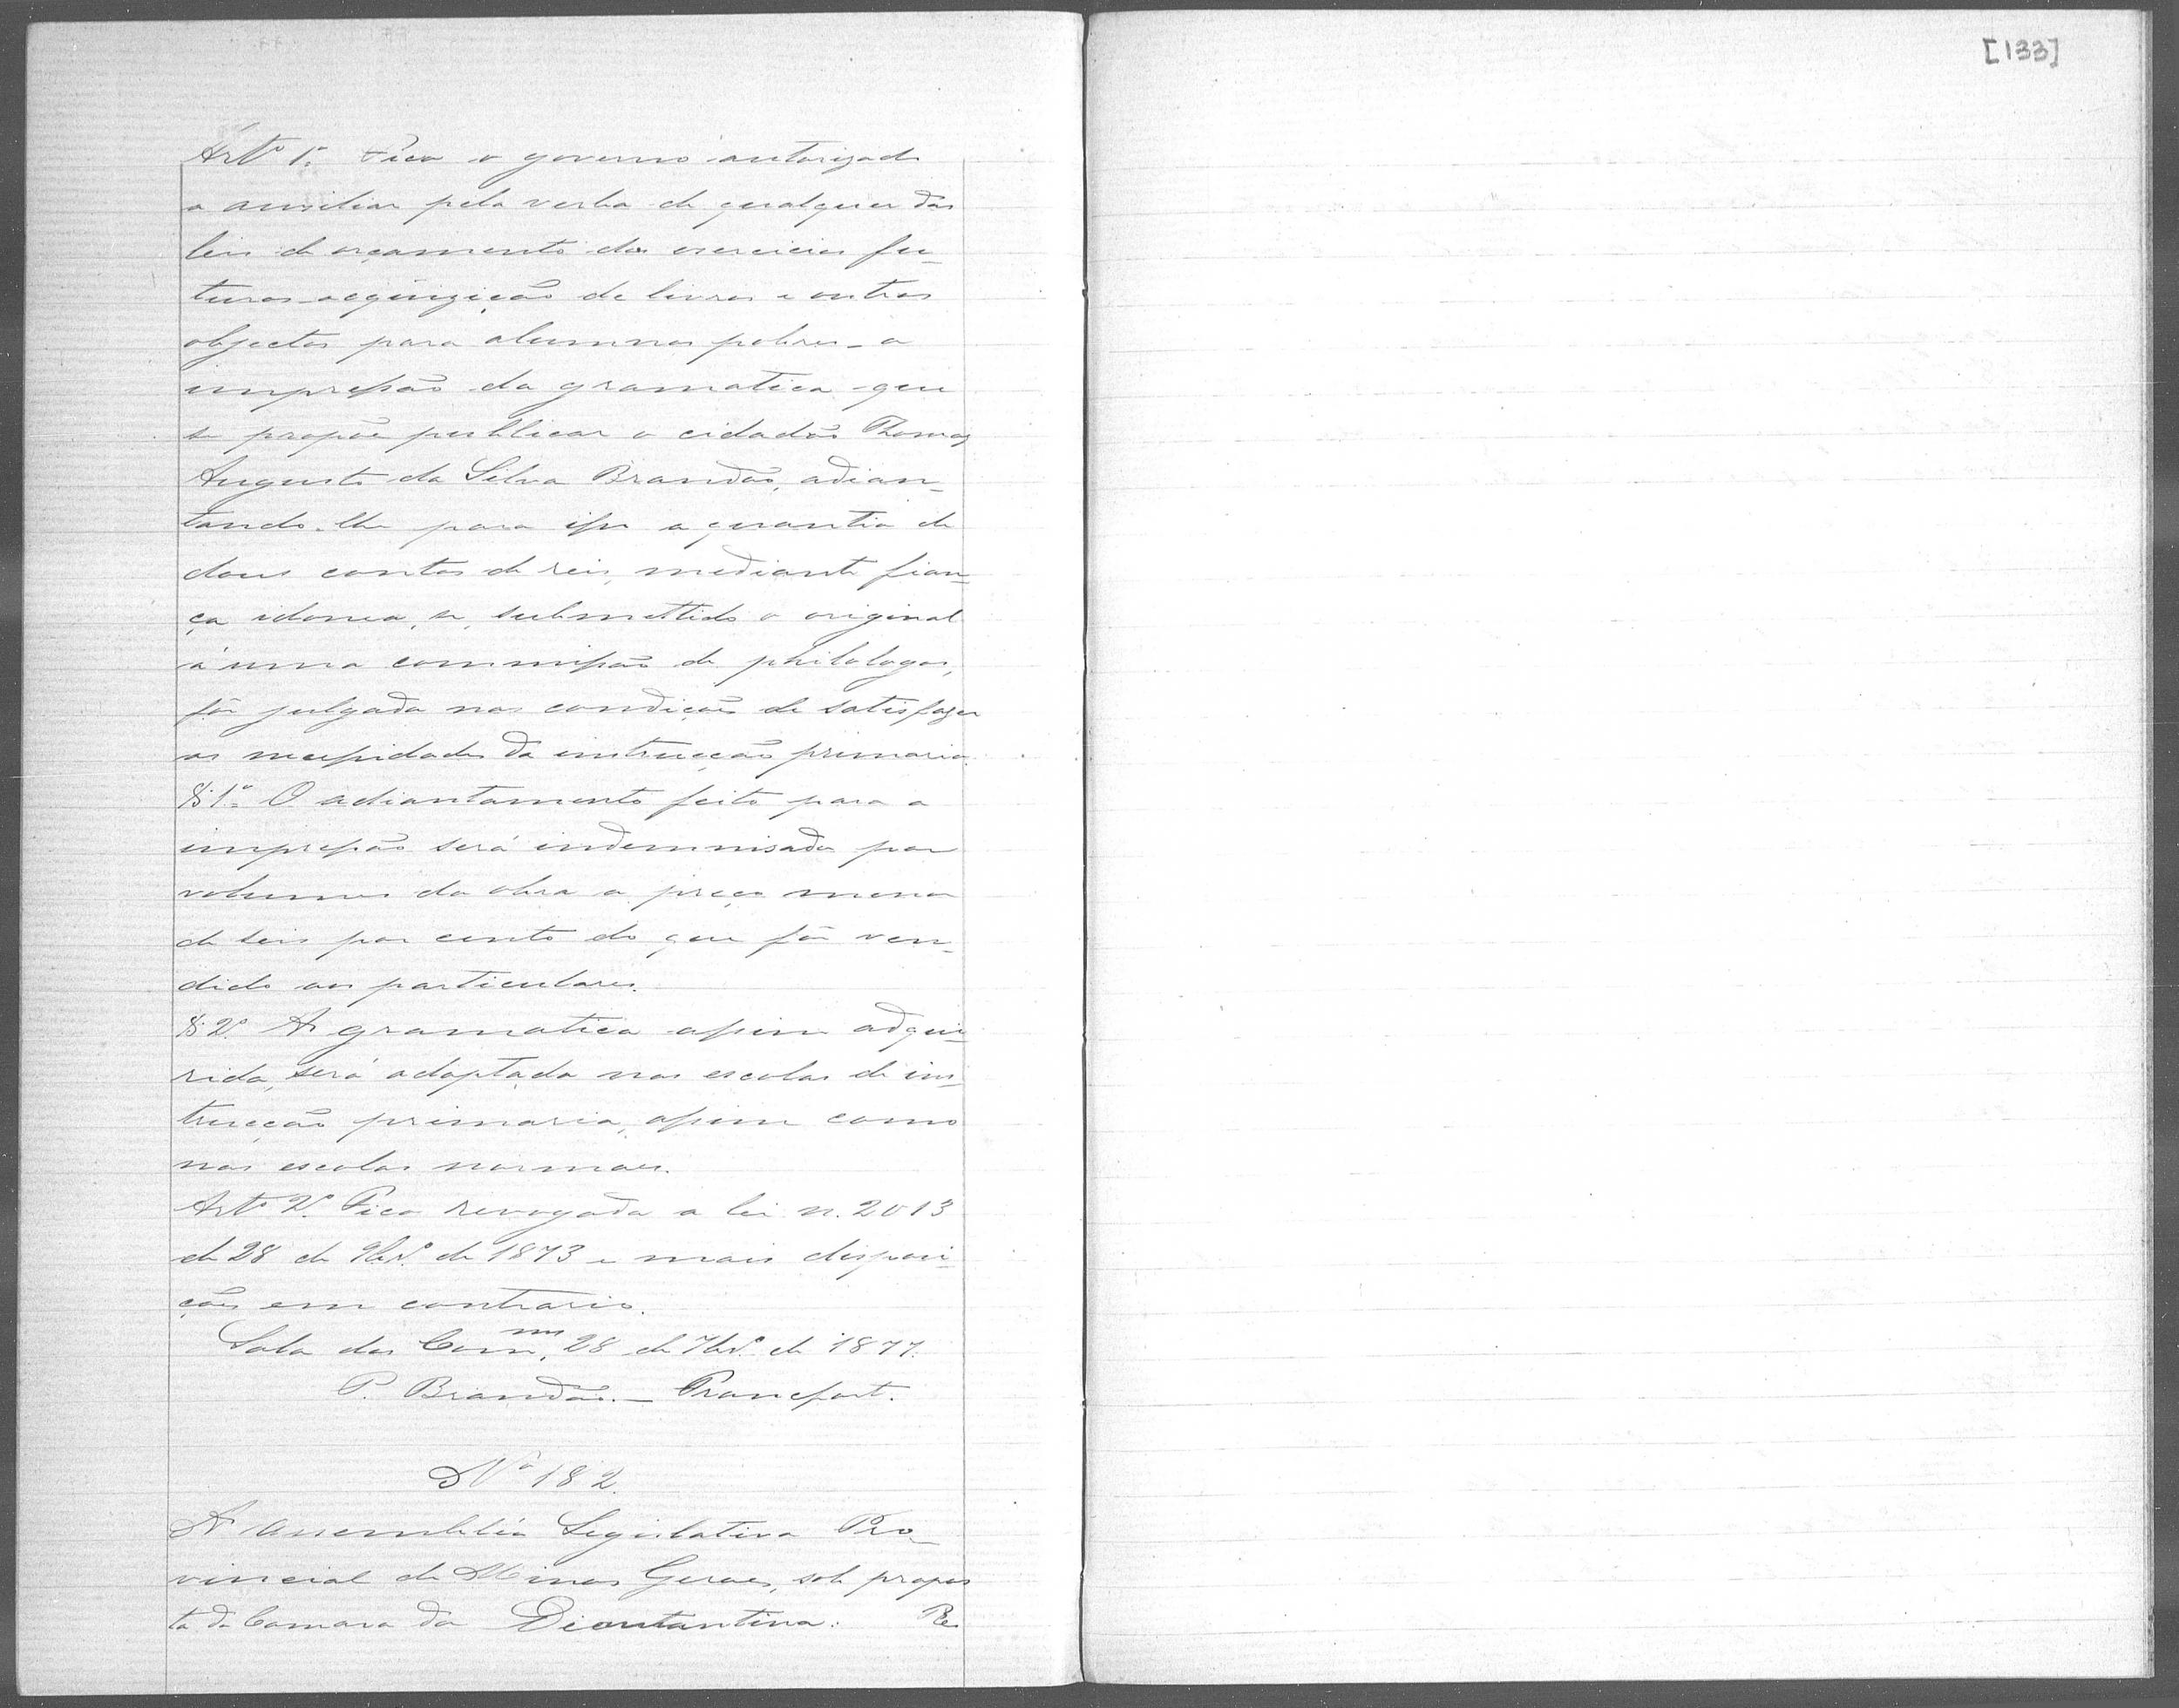 [133]
Artº 1º Fica o governo autorizado
a auxiliar pela verba de qualquer das
leis de orçamento dos exercicios fu-
turos acquizição de livros e outros
objectos para alumnos pobres - a
impressão da gramatica que
se propõe publicar o cidadão Thomaz
Augusto da Silva Brandão, adian-
tando-lhe para isso a quantia de
dous contos de reis, mediante fian-
ça idonea, se, submettido o original
á uma commissão de philologos,
fôr julgada nas condições de satisfazer
as necessidades da instrucção primaria.
§ 1º O adiantamento feito para a
impressão será indemnisado por
volumes da obra a preço menor
de seis por cento do que fôr ven-
dido aos particulares.
§ 2º A gramatica assim adqui-
rida, será adoptada nas escolas de ins-
trucção primaria, assim como
nas escolas normaes.
Artº 2º Fica revogada a lei n. 2013
de 28 de 9brº de 1873 e mais disposi-
ções em contrario.
Sala das Comm.es, 28 de 7brº de 1877.
P. Brandão. — Francfort.
Nº 182.
A Assembléa Legislativa Pro-
vincial de Minas Geraes, sob propos
ta da Camara da Diamantina: Re